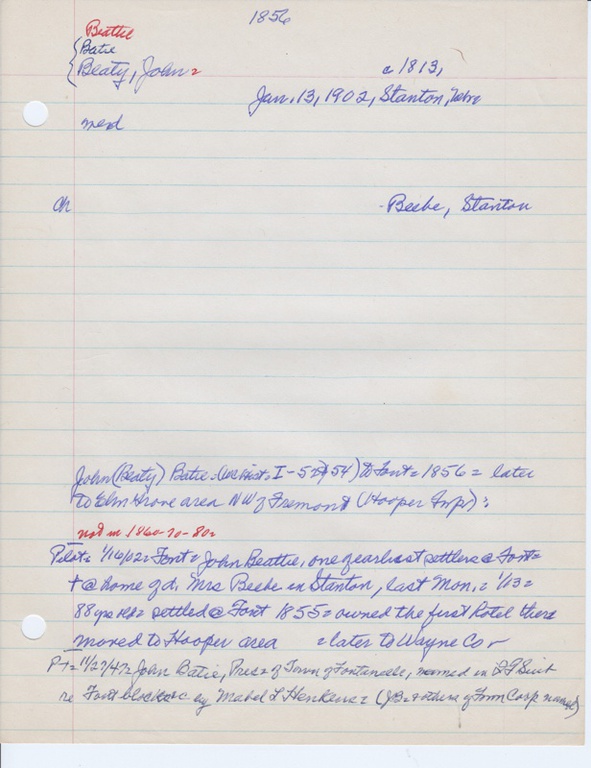 1856
Beattie
Batie
Beaty, John =
c 1813,
Jan. 13, 1902, Stanton, Nebr
med
ch
- Beebe, Stanton
John (Beaty) Batie = I - 52 & 54) to Font = 1856 = later
to Elm Grove area NW of Fremont (Hooper Twp) :
not in 1860-70-80 =
Pilot = 1/16/02 = Font = John Beattie, one of earliest settlers @ Font =
+ @ home of d. Mrs Beebe in Stanton, last Mon. = 1/13 =
88 yrs old = settled @ Font 1855 = owned the first hotel there
moved to Hooper area = later to Wayne Co
P T = 11/27/47 = John Batie, Pres = of Town of Fontanelle, named in
re Font blockade by Mabel L Henkens = (JB & others of Town Corp named)